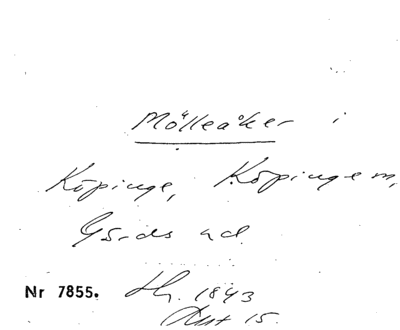 Mölleåker i
Köpinge, Köpinge m,
Gärds hd.
Nr 7855. Hg. 1843
Akt 15.